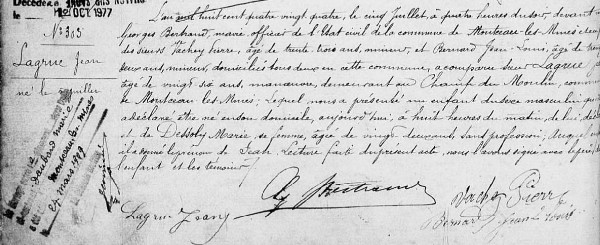 Décédé
OCT 1977
N° 305
Lagrue Jean
né le 5 juillet
marié
Montceau les Mines
24 mars 1909
L'an mil huit cent quatre vingt quatre, le cinq Juillet, à quatre heures du soir, devant
Georges Bertrand, maire, officier de l'état civil de la commune de Montceau-les-Mines,
des sieurs Vachey Pierre, âgé de trente-trois ans, mineur, et Bernard Jean-Louis, âgé de
deux ans, mineur, domiciliés tous deux en cette commune, a comparu sieur Lagrue
âgé de vingt six ans, manœuvre, demeurant au Champ du Moulin, commune
de Montceau-les-Mines; Lequel nous a présenté un enfant du sexe masculin qu'il
a déclaré être né en son domicile, aujourd'hui, à huit heures du matin, de lui, déclarant
et de Dessoly Marie, sa femme, âgée de vingt deux ans, sans profession; auquel
il a donné le prénom de Jean. Lecture faite du présent acte, nous l'avons signé avec le père de
l'enfant et les témoins.
Lagrue Jean
G Bertrand
Vachey Pierre
Bernard Jean Louis